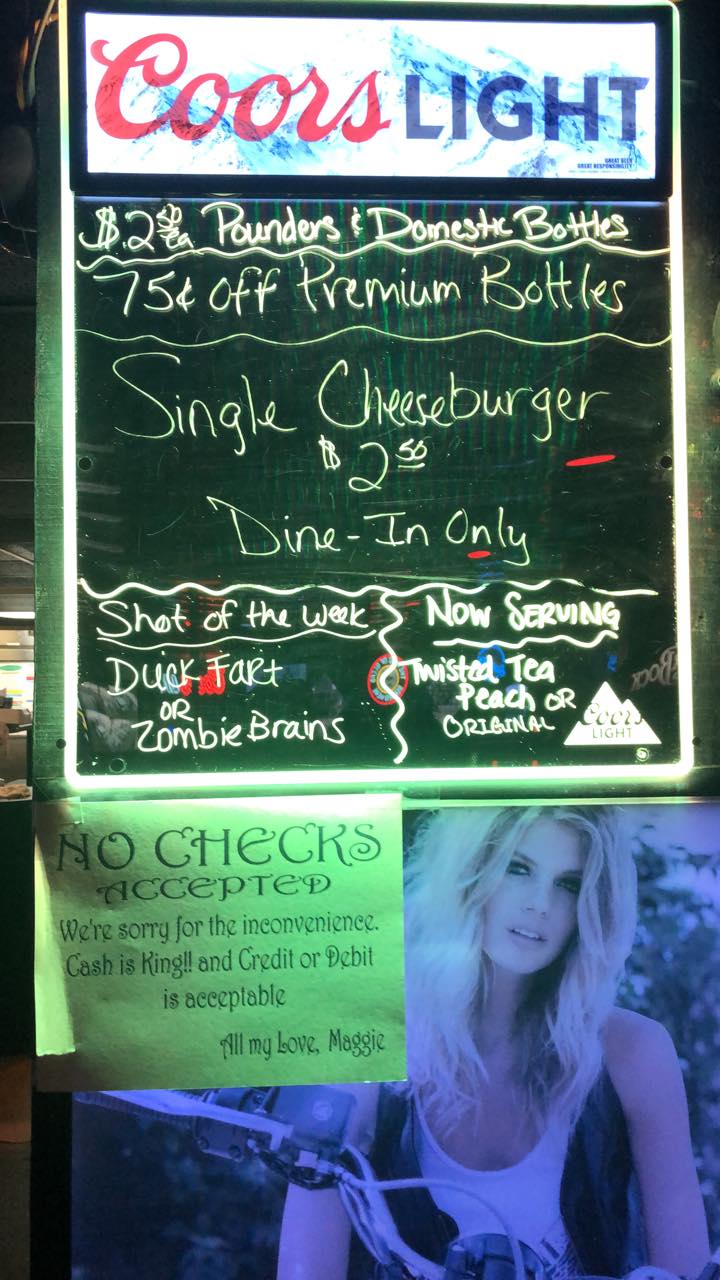 Coors LIGHT
GREAT BEER
GREAT RESPONSIBILITY
$.2.50 ea Pounders & Domestic Bottles
75¢ off Premium Bottles
Single Cheeseburger
$2 50
Dine-In Only
Shot of the Week
Duck Fart
OR
Zombie Brains
NOW SERVING
Twisted Tea
Peach OR
ORIGINAL
Coors
LIGHT
NO CHECKS
ACCEPTED
We're sorry for the inconvenience.
Cash is King!! and Credit or Debit
is acceptable
All my Love, Maggie